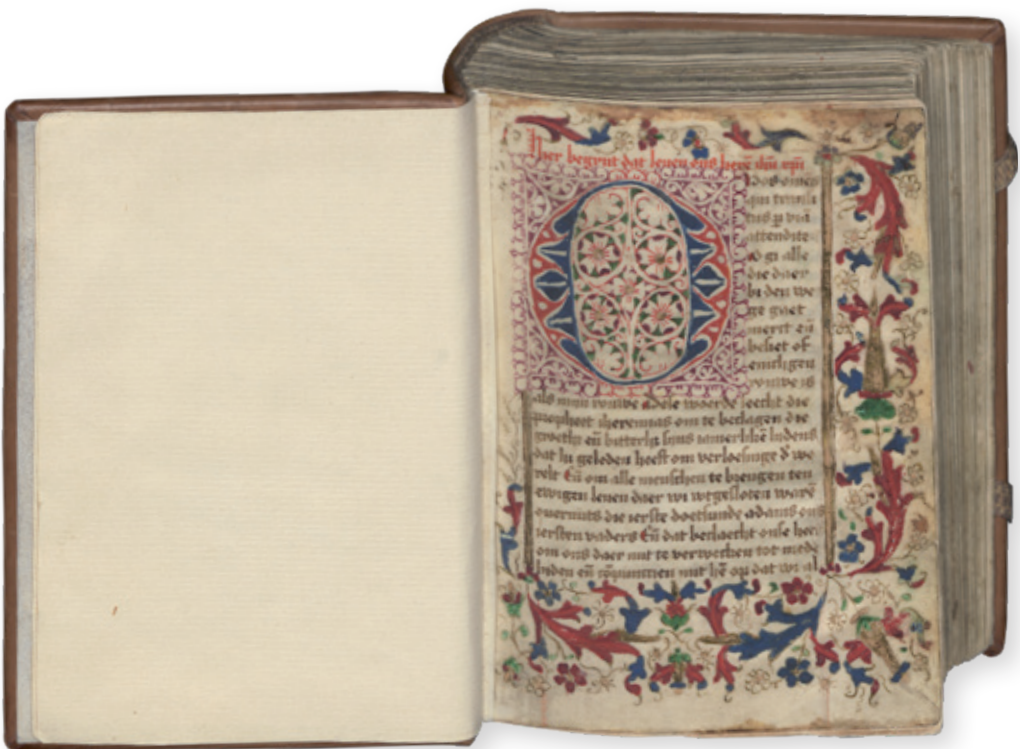 Hier begynt dat leuen ons herē ihū xpī
O vos omēs
qui transi
tis p viā
attendite
O gi alle
die daer
bi den we
ge gaet
merct eñ
besiet of
enich gen
rouwe is
als mijn rouwe Dese woerde seecht die
propheet iheremias om te beclagen die
groeth eñ bitterh sijns iamerlikē lidens
dat hi geleden heeft om verloesinge d we
relt Eñ om alle menschen te brengen ten
ewigen leuen daer wi wtgesloten warē
ouermits die ierste doetsunde adams ons
iersten vaders Eñ dat beclaecht onse here
om ons daer mit te verwecken tot mede
liden eñ mit hē op dat wi al